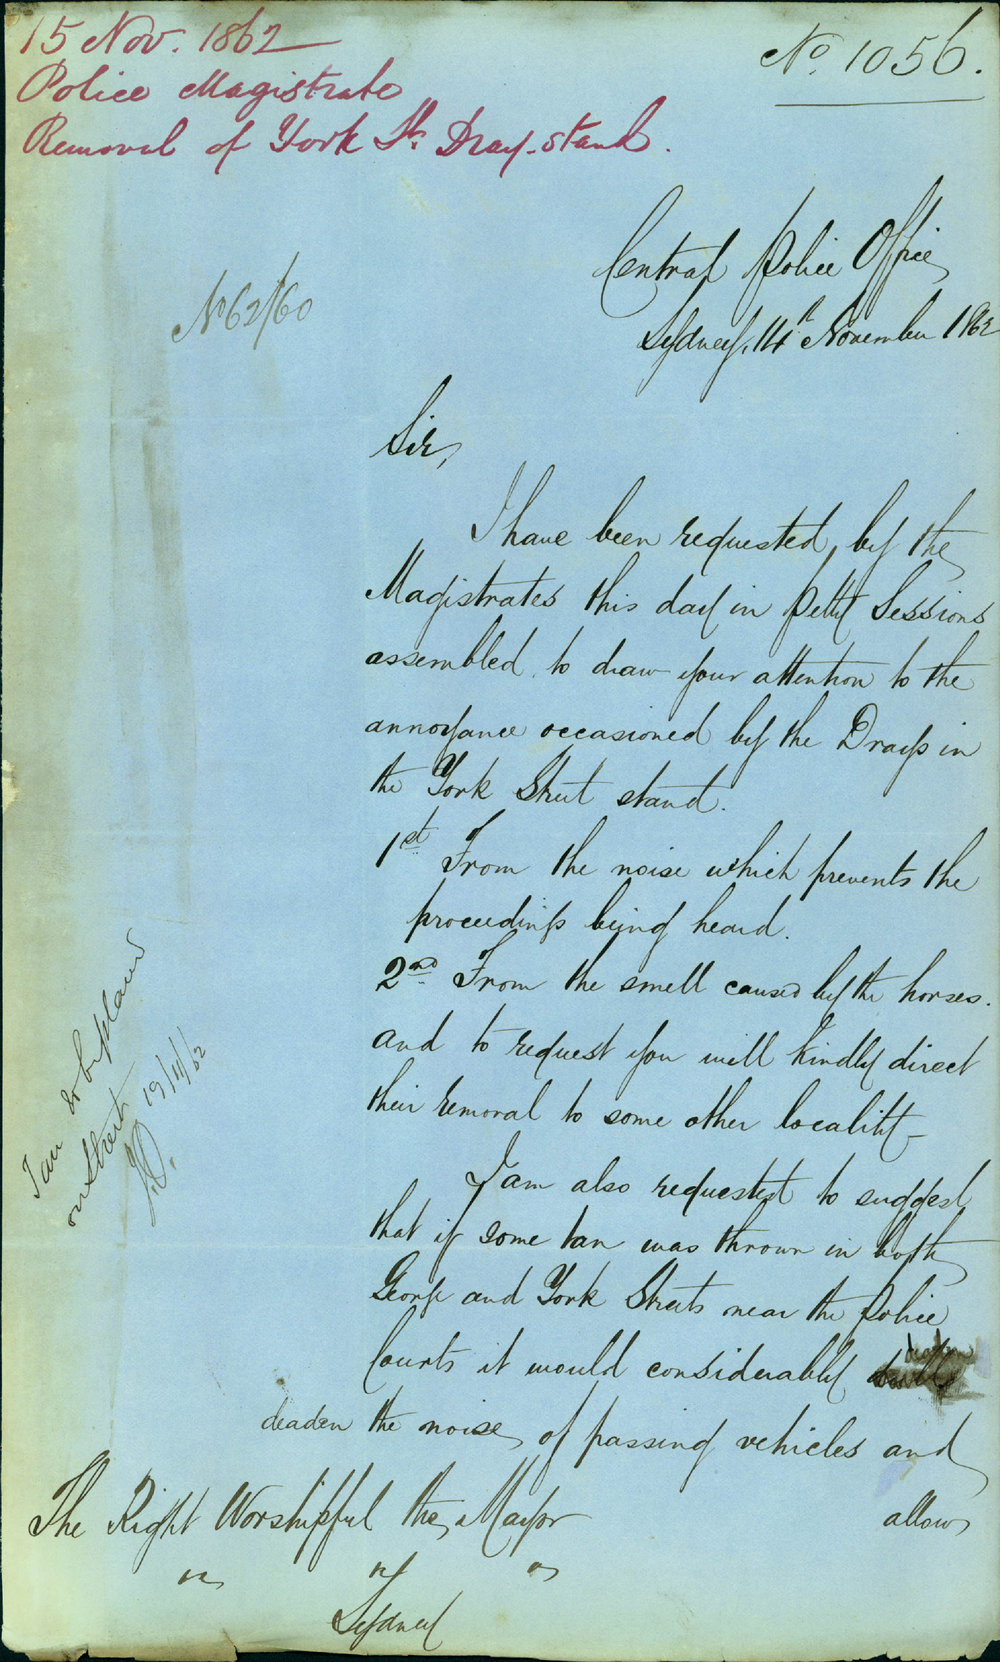 15 Nov. 1862
Police Magistrate
Removal of York St. Dray-stand.
No. 1056.
No 62/60
Central Police Office
Sydney, 14th November 1862
Sir,
I have been requested, by the
Magistrates this day in Petty Sessions
assembled, to draw your attention to the
annoyance occasioned by the Drays in
the York Street stand.
1st From the noise which prevents the
proceedings being heard.
2nd From the smell caused by the horses.
and to request you will kindly direct
their removal to some other locality
I am also requested to suggest
that if some tan was thrown in both
George and York Streets near the Police
Courts it would considerably
deaden the noise of passing vehicles and
allow
The Right Worshipful the Mayor
of
Sydney
Tan to be placed
on Streets
19/11/62